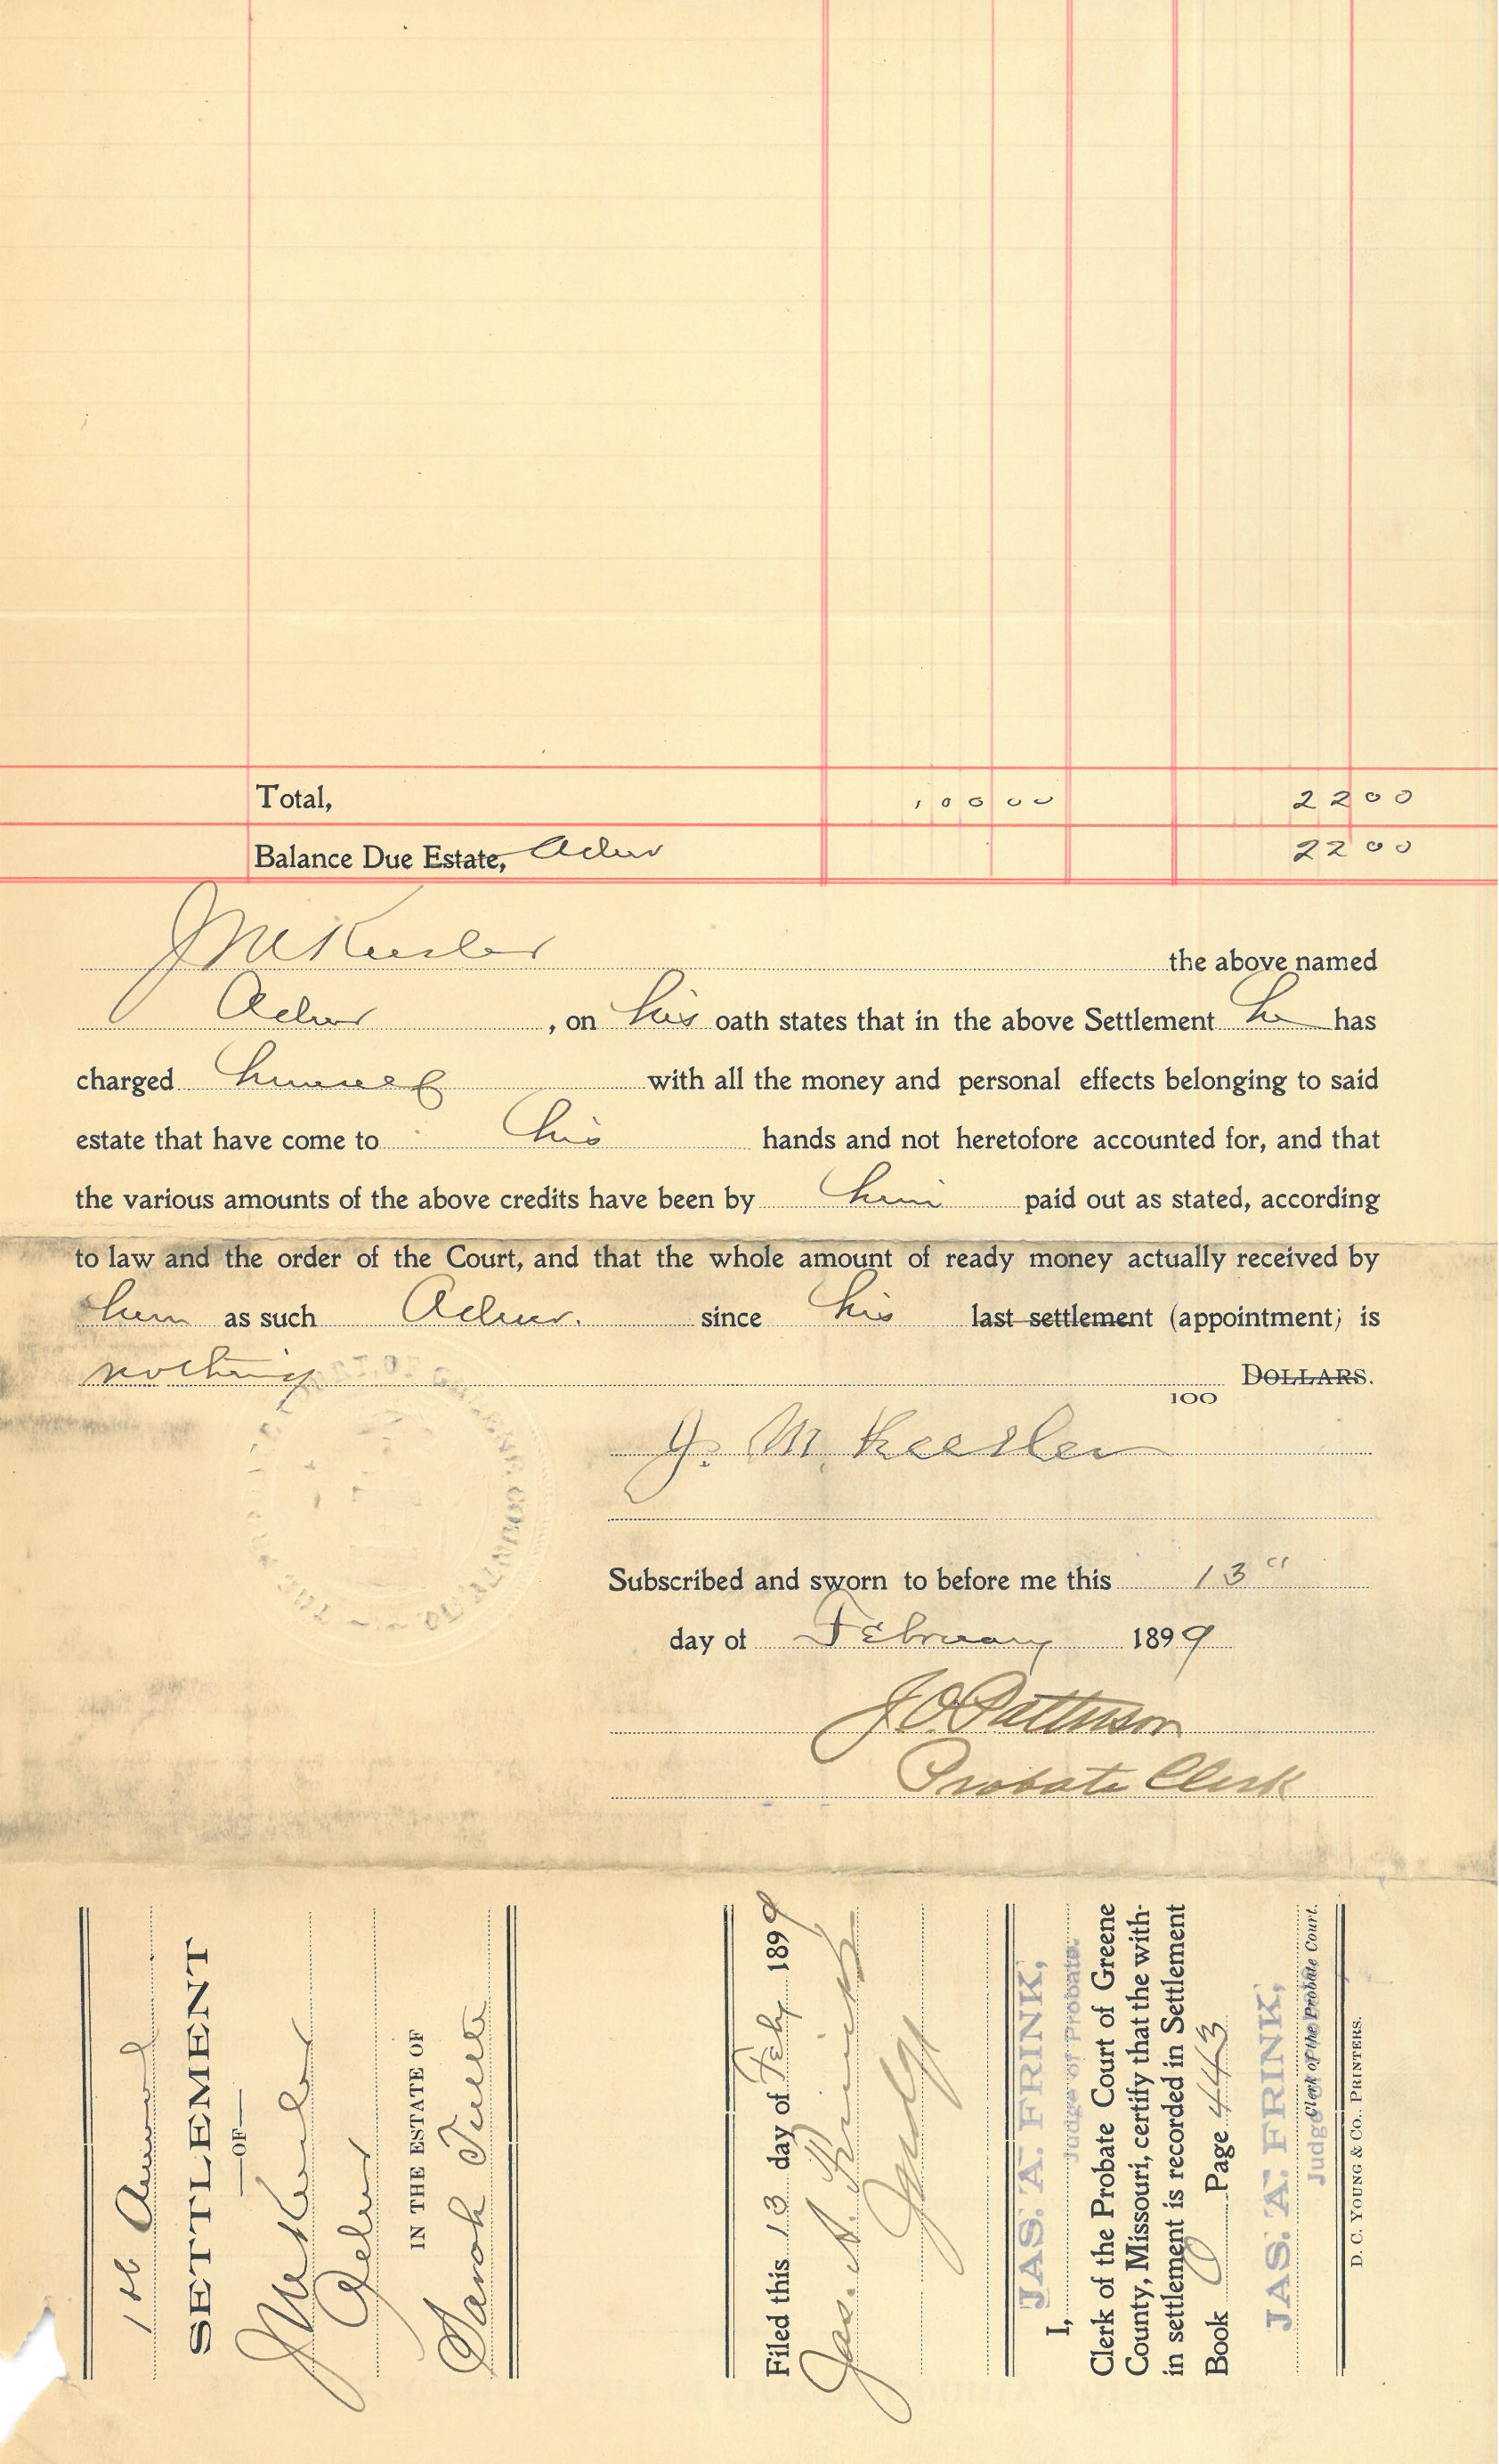 Total, 100 00 22 00
Balance Due Estate, Admr 22 00
J M Keesler the above named
Admr , on his oath states that in the above Settlement he has
charged himself with all the money and personal effects belonging to said
estate that have come to his hands and not heretofore accounted for, and that
the various amounts of the above credits have been by him paid out as stated, according
to law and the order of the Court, and that the whole amount of ready money actually received by
him as such Admr. since his last settlement (appointment) is
nothing DOLLARS.
100
J. M. Keesler
Subscribed and sworn to before me this 13"
day of February 1899
J O Patterson
Probate Clerk
1st Annual
SETTLEMENT
—OF—
J M Keesler
Admr
IN THE ESTATE OF
Sarah
Filed this 13 day of Feby 1899
Jas. A. Frink
Judge
I, JAS. A. FRINK,
Judge of Probate.
Clerk of the Probate Court of Greene
County, Missouri, certify that the with-
in settlement is recorded in Settlement
Book Page 443
JAS. A. FRINK,
Clerk of the Probate Court.
Judge of Probate
D. C. YOUNG & CO., PRINTERS.